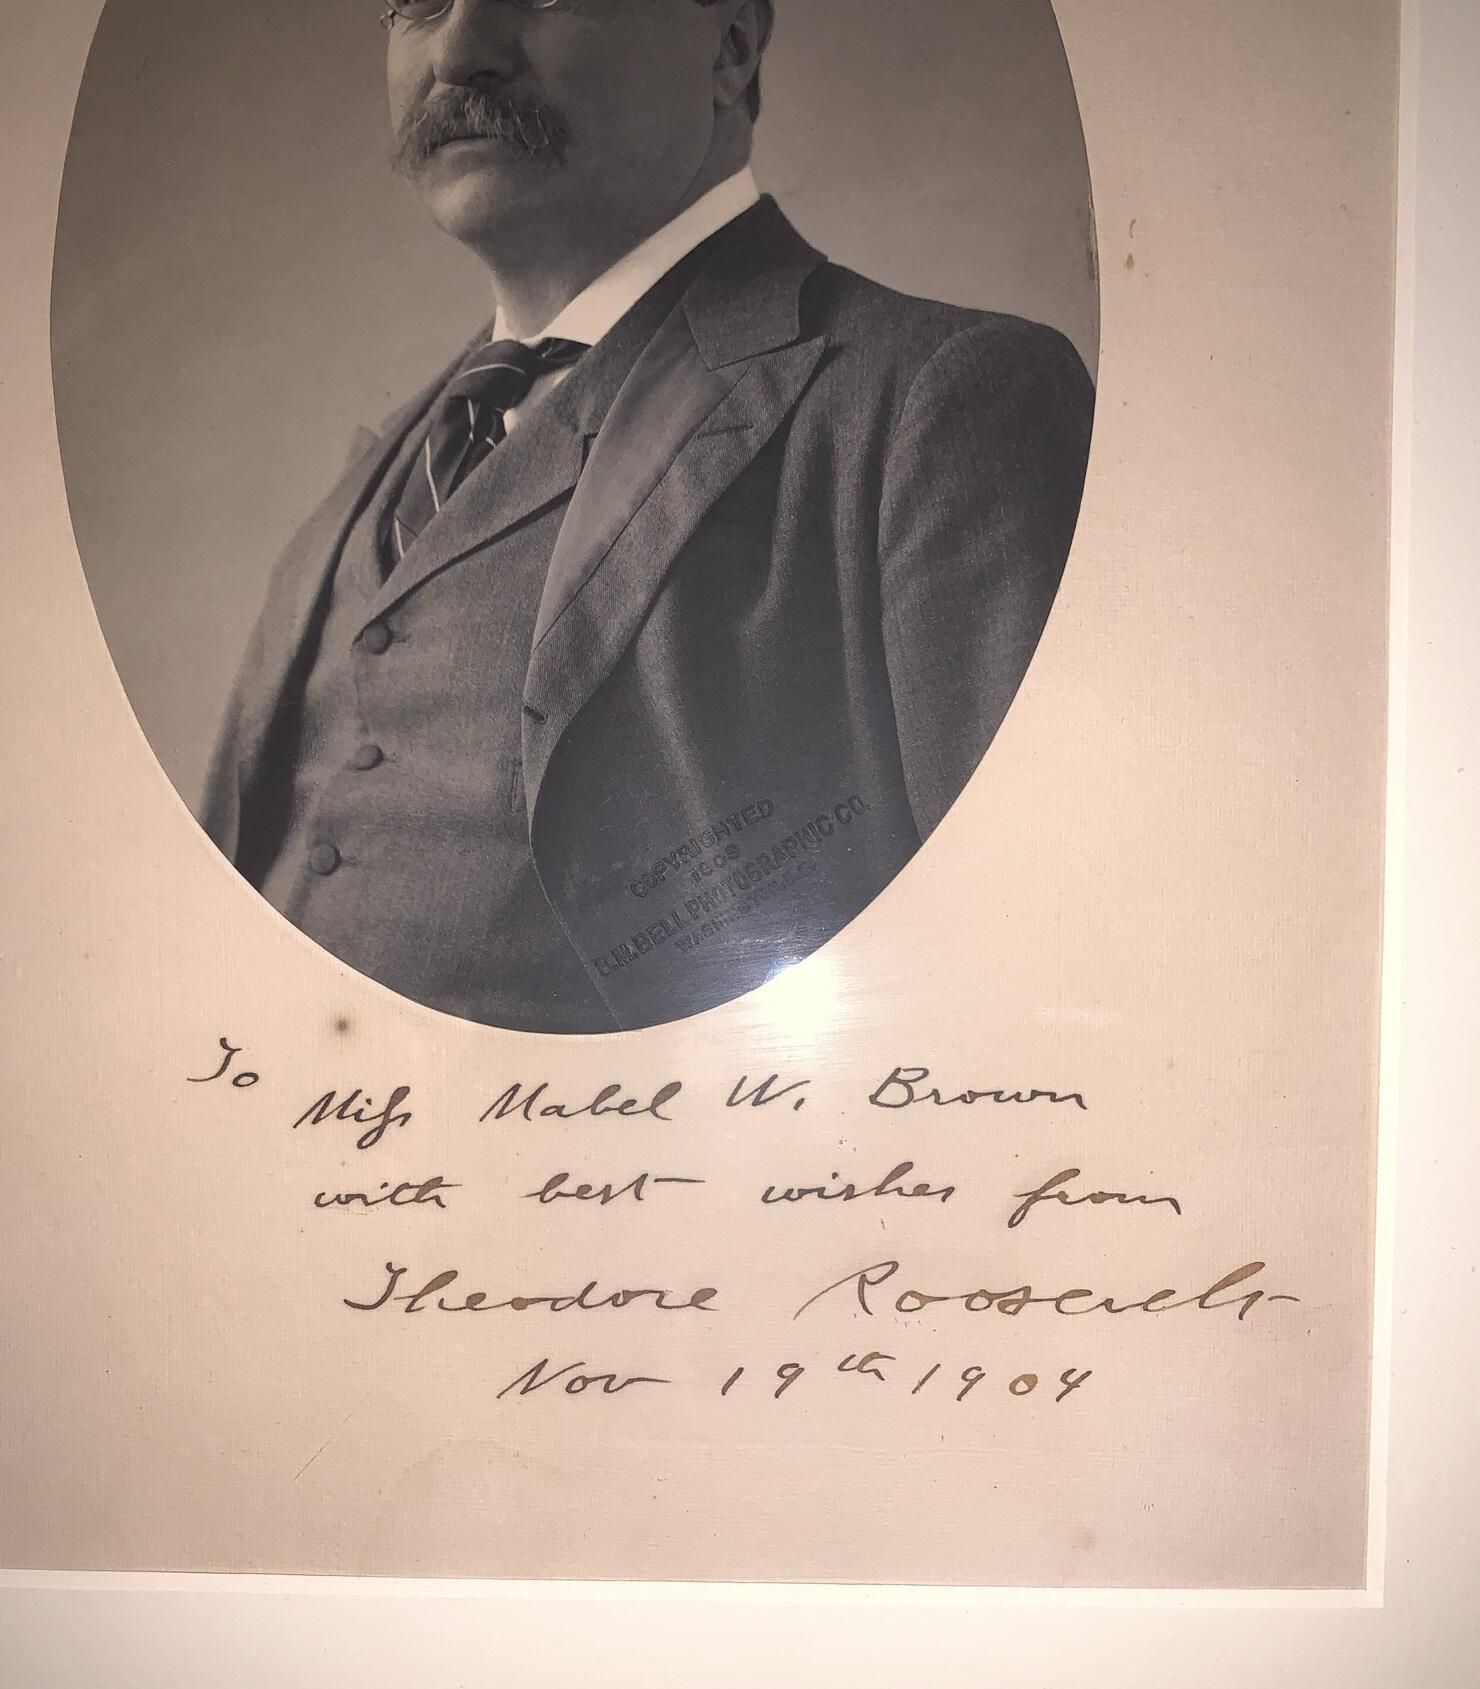 COPYRIGHTED
1903
B.M.BELL PHOTOGRAPHIC CO.
WASHINGTON, D.C.
To
Miss Mabel W. Brown
with best wishes from
Theodore Roosevelt
Nov 19th 1904